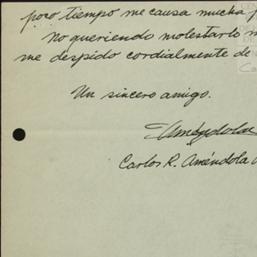 poco tiempo me causa mucha
no queriendo molestarlo
me despido cordialmente de
Un sincero amigo.
Améndola
Carlos R. Améndola